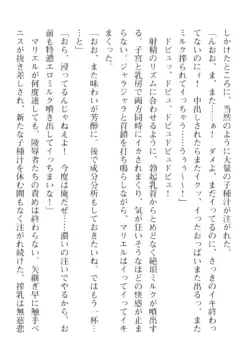 しかけたところに、当然のように大量の子種汁が注がれた。
「んおお、また、まだイッてるのに、さっきのイキ終わってないのにぃ……っ! ダメよ、中出しでまたイクッ、イッたおっぱいまた出るっ、
ミルク搾られてイッちゃう……うぅ～～～っ!」
ドビュッ、ドビュ! ドビュドビュドビュドビュ!
射精のリズムに合わせるように、勃起乳首から絶頂ミルクが噴出する。子宮と乳房で同時にイカされ、気が狂いそうなほどの快感が止まらない。ジャラジャラと首鎖を打ち鳴らしながら、マリエルはイッてイッてイキまくった。
「おお、また味わいが芳醇に。後で成分分析もしておきたいね ではもう一杯…」
「おら、浸ってるんじゃねぇよ! 今度は俺だぜ…っ濃いの注いでやる、お前も特濃エロミルク噴き出してイッちまいな!」
マリエルが何度達しても、陵辱者たちの責めは終わらない。矢継ぎ早に触手ペニスが抜き差しされ、新たな子種汁を休む間もなく注がれ続けた。搾乳は無慈悲